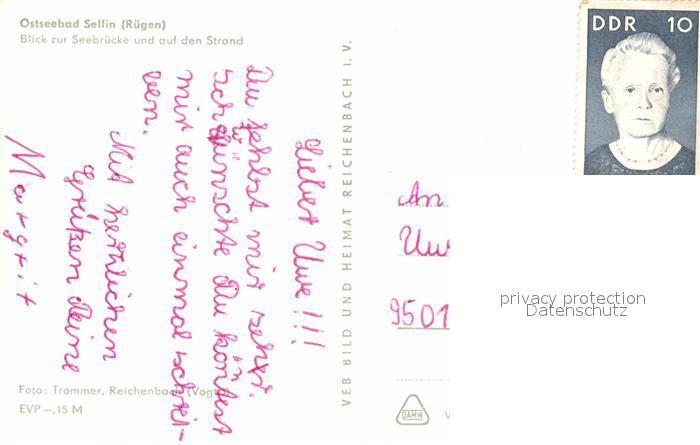 Ostseebad Sellin (Rügen)
Blick zur Seebrücke und auf den Strand
Lieber Uwe!!!
Du fehlst mir sehr.
Ich wünschte Du könntest
mir auch einmal schrei-
ben.
Mit herzlichen
Grüßen Deine
Margrit
Foto: Trommer, Reichenbach (Vogtl.)
EVP –,15 M
VEB BILD UND HEIMAT REICHENBACH I. V.
DDR 10
An
Uw
9501
privacy protection
Datenschutz
DAMW
V